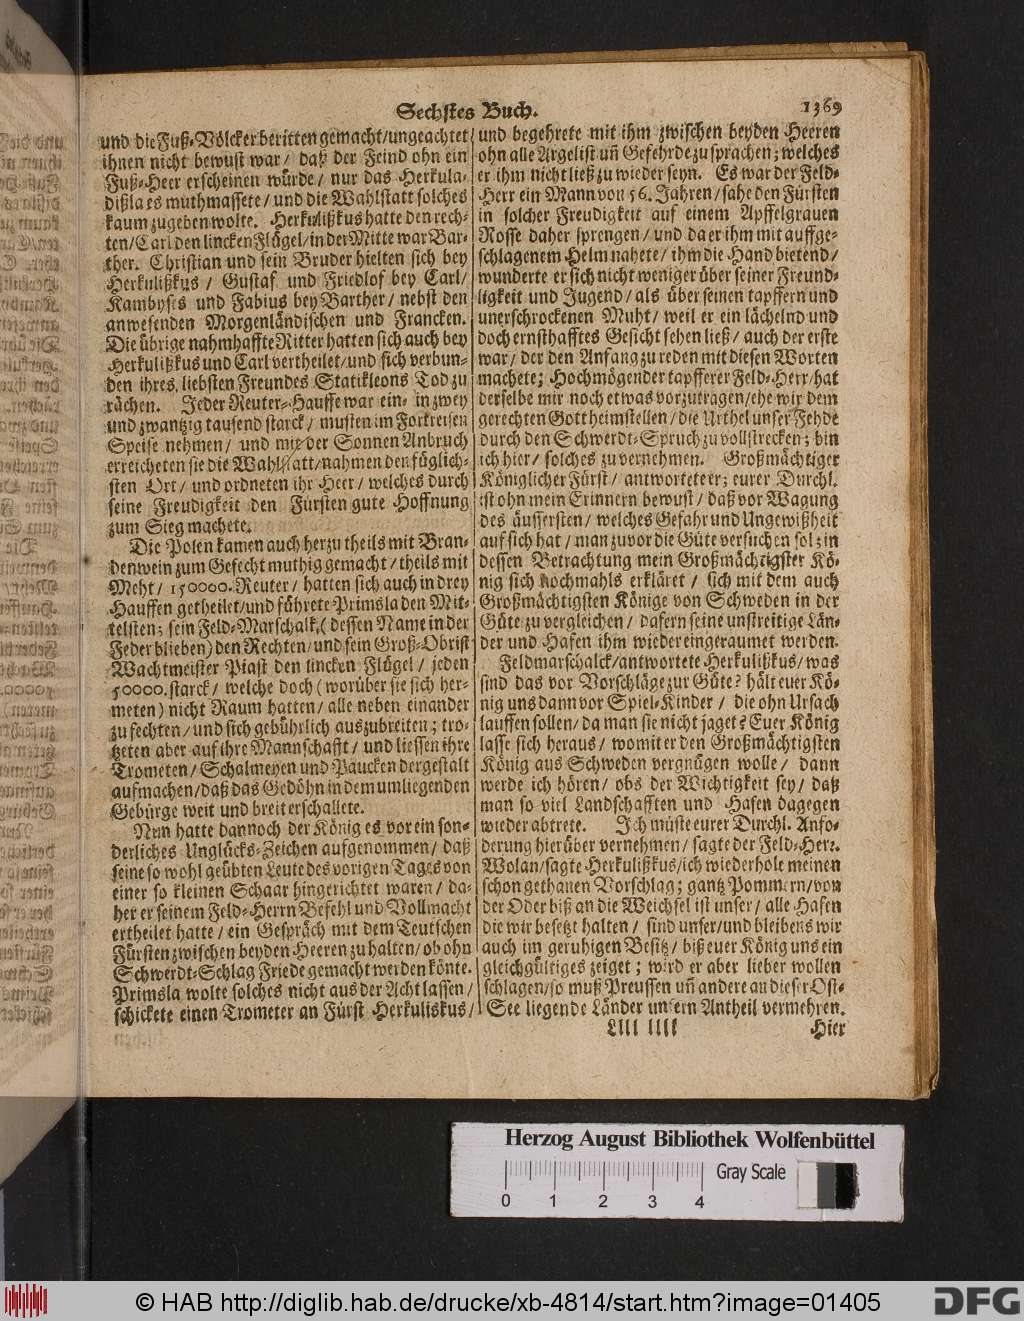 Sechstes Buch.
1369
und die Fuß-Völcker beritten gemacht/ungeachtet
ihnen nicht bewust war/ daß der Feind ohn ein
Fuß-Heer erscheinen würde/ nur das Herkula-
dißla es muthmassete/ und die Wahlstatt solches
kaum zugeben wolte. Herkulißkus hatte den rech-
ten/ Carl den lincken Flügel/ in der Mitte war Bar-
ther. Christian und sein Bruder hielten sich bey
Herkulißkus/ Gustaf und Friedlof bey Carl/
Kambyses und Fabius bey Barther/ nebst den
anwesenden Morgenländischen und Francken.
Die übrige nahmhaffte Ritter hatten sich auch bey
Herkulißkus und Carl vertheilet/ und sich verbun-
den ihres liebsten Freundes Statikleons Tod zu
rächen. Jeder Reuter-Hauffe war ein- in zwey
und zwantzig tausend starck/ musten im Fortreisen
Speise nehmen/ und mit der Sonnen Anbruch
erreicheten sie die Wahlstatt/ nahmen den füglich-
sten Ort/ und ordneten ihr Heer/ welches durch
seine Freudigkeit den Fürsten gute Hoffnung
zum Sieg machete.
Die Polen kamen auch herzu theils mit Bran-
denwein zum Gefecht muthig gemacht/ theils mit
Meht/ 150000. Reuter/ hatten sich auch in drey
Hauffen getheilet/ und führete Primsla den Mit-
telsten; sein Feld-Marschalk/ (dessen Name in der
Feder blieben) den Rechten/ und sein Groß-Obrist
Wachtmeister Piast den lincken Flügel/ jeden
50000. starck/ welche doch (worüber sie sich her-
meten) nicht Raum hatten/ alle neben einander
zu fechten/ und sich gebührlich auszubreiten; tro-
tzeten aber auf ihre Mannschafft/ und liessen ihre
Trometen/ Schalmeyen und Paucken dergestalt
aufmachen/ daß das Gedöhn in dem umliegenden
Gebürge weit und breit erschallete.
Nun hatte dannoch der König es vor ein son-
derliches Unglücks-Zeichen aufgenommen/ daß
seine so wohl geübten Leute des vorigen Tages von
einer so kleinen Schaar hingerichtet waren/ da-
her er seinem Feld-Herrn Befehl und Vollmacht
ertheilet hatte/ ein Gespräch mit dem Teutschen
Fürsten zwischen beyden Heeren zu halten/ ob ohn
Schwerdt-Schlag Friede gemacht werden könte.
Primsla wolte solches nicht aus der Acht lassen/
schickete einen Trometer an Fürst Herkuliskus/
und begehrete mit ihm zwischen beyden Heeren
ohn alle Argelist uñ Gefehrde zu sprachen; welches
er ihm nicht ließ zu wieder seyn. Es war der Feld-
Herr ein Mann von 56. Jahren/ sahe den Fürsten
in solcher Freudigkeit auf einem Apffelgrauen
Rosse daher sprengen/ und da er ihm mit auffge-
schlagenem Helm nahete/ ihm die Hand bietend/
wunderte er sich nicht weniger über seiner Freund-
ligkeit und Jugend/ als über seinen tapffern und
unerschrockenen Muht/ weil er ein lächelnd und
doch ernsthafftes Gesicht sehen ließ/ auch der erste
war/ der den Anfang zu reden mit diesen Worten
machete; Hochmögender tapfferer Feld-Herr/ hat
derselbe mir noch etwas vorzutragen/ ehe wir dem
gerechten Gott heimstellen/ die Urthel unser Fehde
durch den Schwerdt-Spruch zu vollstrecken; bin
ich hier/ solches zu vernehmen. Großmächtiger
Königlicher Fürst/ antwortete er; eurer Durchl.
ist ohn mein Erinnern bewust/ daß vor Wagung
des äussersten/ welches Gefahr und Ungewißheit
auf sich hat/ man zuvor die Güte versuchen sol; in
dessen Betrachtung mein Großmächtigster Kö-
nig sich nochmahls erkläret/ sich mit dem auch
Großmächtigsten Könige von Schweden in der
Güte zu vergleichen/ dafern seine unstreitige Län-
der und Hafen ihm wieder eingeraumet werden.
Feldmarschalck/ antwortete Herkulißkus/ was
sind das vor Vorschläge zur Güte? hält euer Kö-
nig uns dann vor Spiel-Kinder/ die ohn Ursach
lauffen sollen/ da man sie nicht jaget? Euer König
lasse sich heraus/ womit er den Großmächtigsten
König aus Schweden vergnügen wolle/ dann
werde ich hören/ obs der Wichtigkeit sey/ daß
man so viel Landschafften und Hafen dagegen
wieder abtrete. Ich müste eurer Durchl. Anfo-
derung hierüber vernehmen/ sagte der Feld-Herr.
Wolan/ sagte Herkulißkus/ ich wiederhole meinen
schon gethanen Vorschlag; gantz Pommern/ von
der Oder biß an die Weichsel ist unser/ alle Hafen
die wir besetzt halten/ sind unser/ und bleibens wir
auch im geruhigen Besitz/ biß euer König uns ein
gleichgültiges zeiget; wird er aber lieber wollen
schlagen/ so muß Preussen uñ andere an dieser Ost-
See liegende Länder unsern Antheil vermehren.
Llll llll
Hier
Herzog August Bibliothek Wolfenbüttel
Gray Scale
0 1 2 3 4
© HAB http://diglib.hab.de/drucke/xb-4814/start.htm?image=01405
DFG